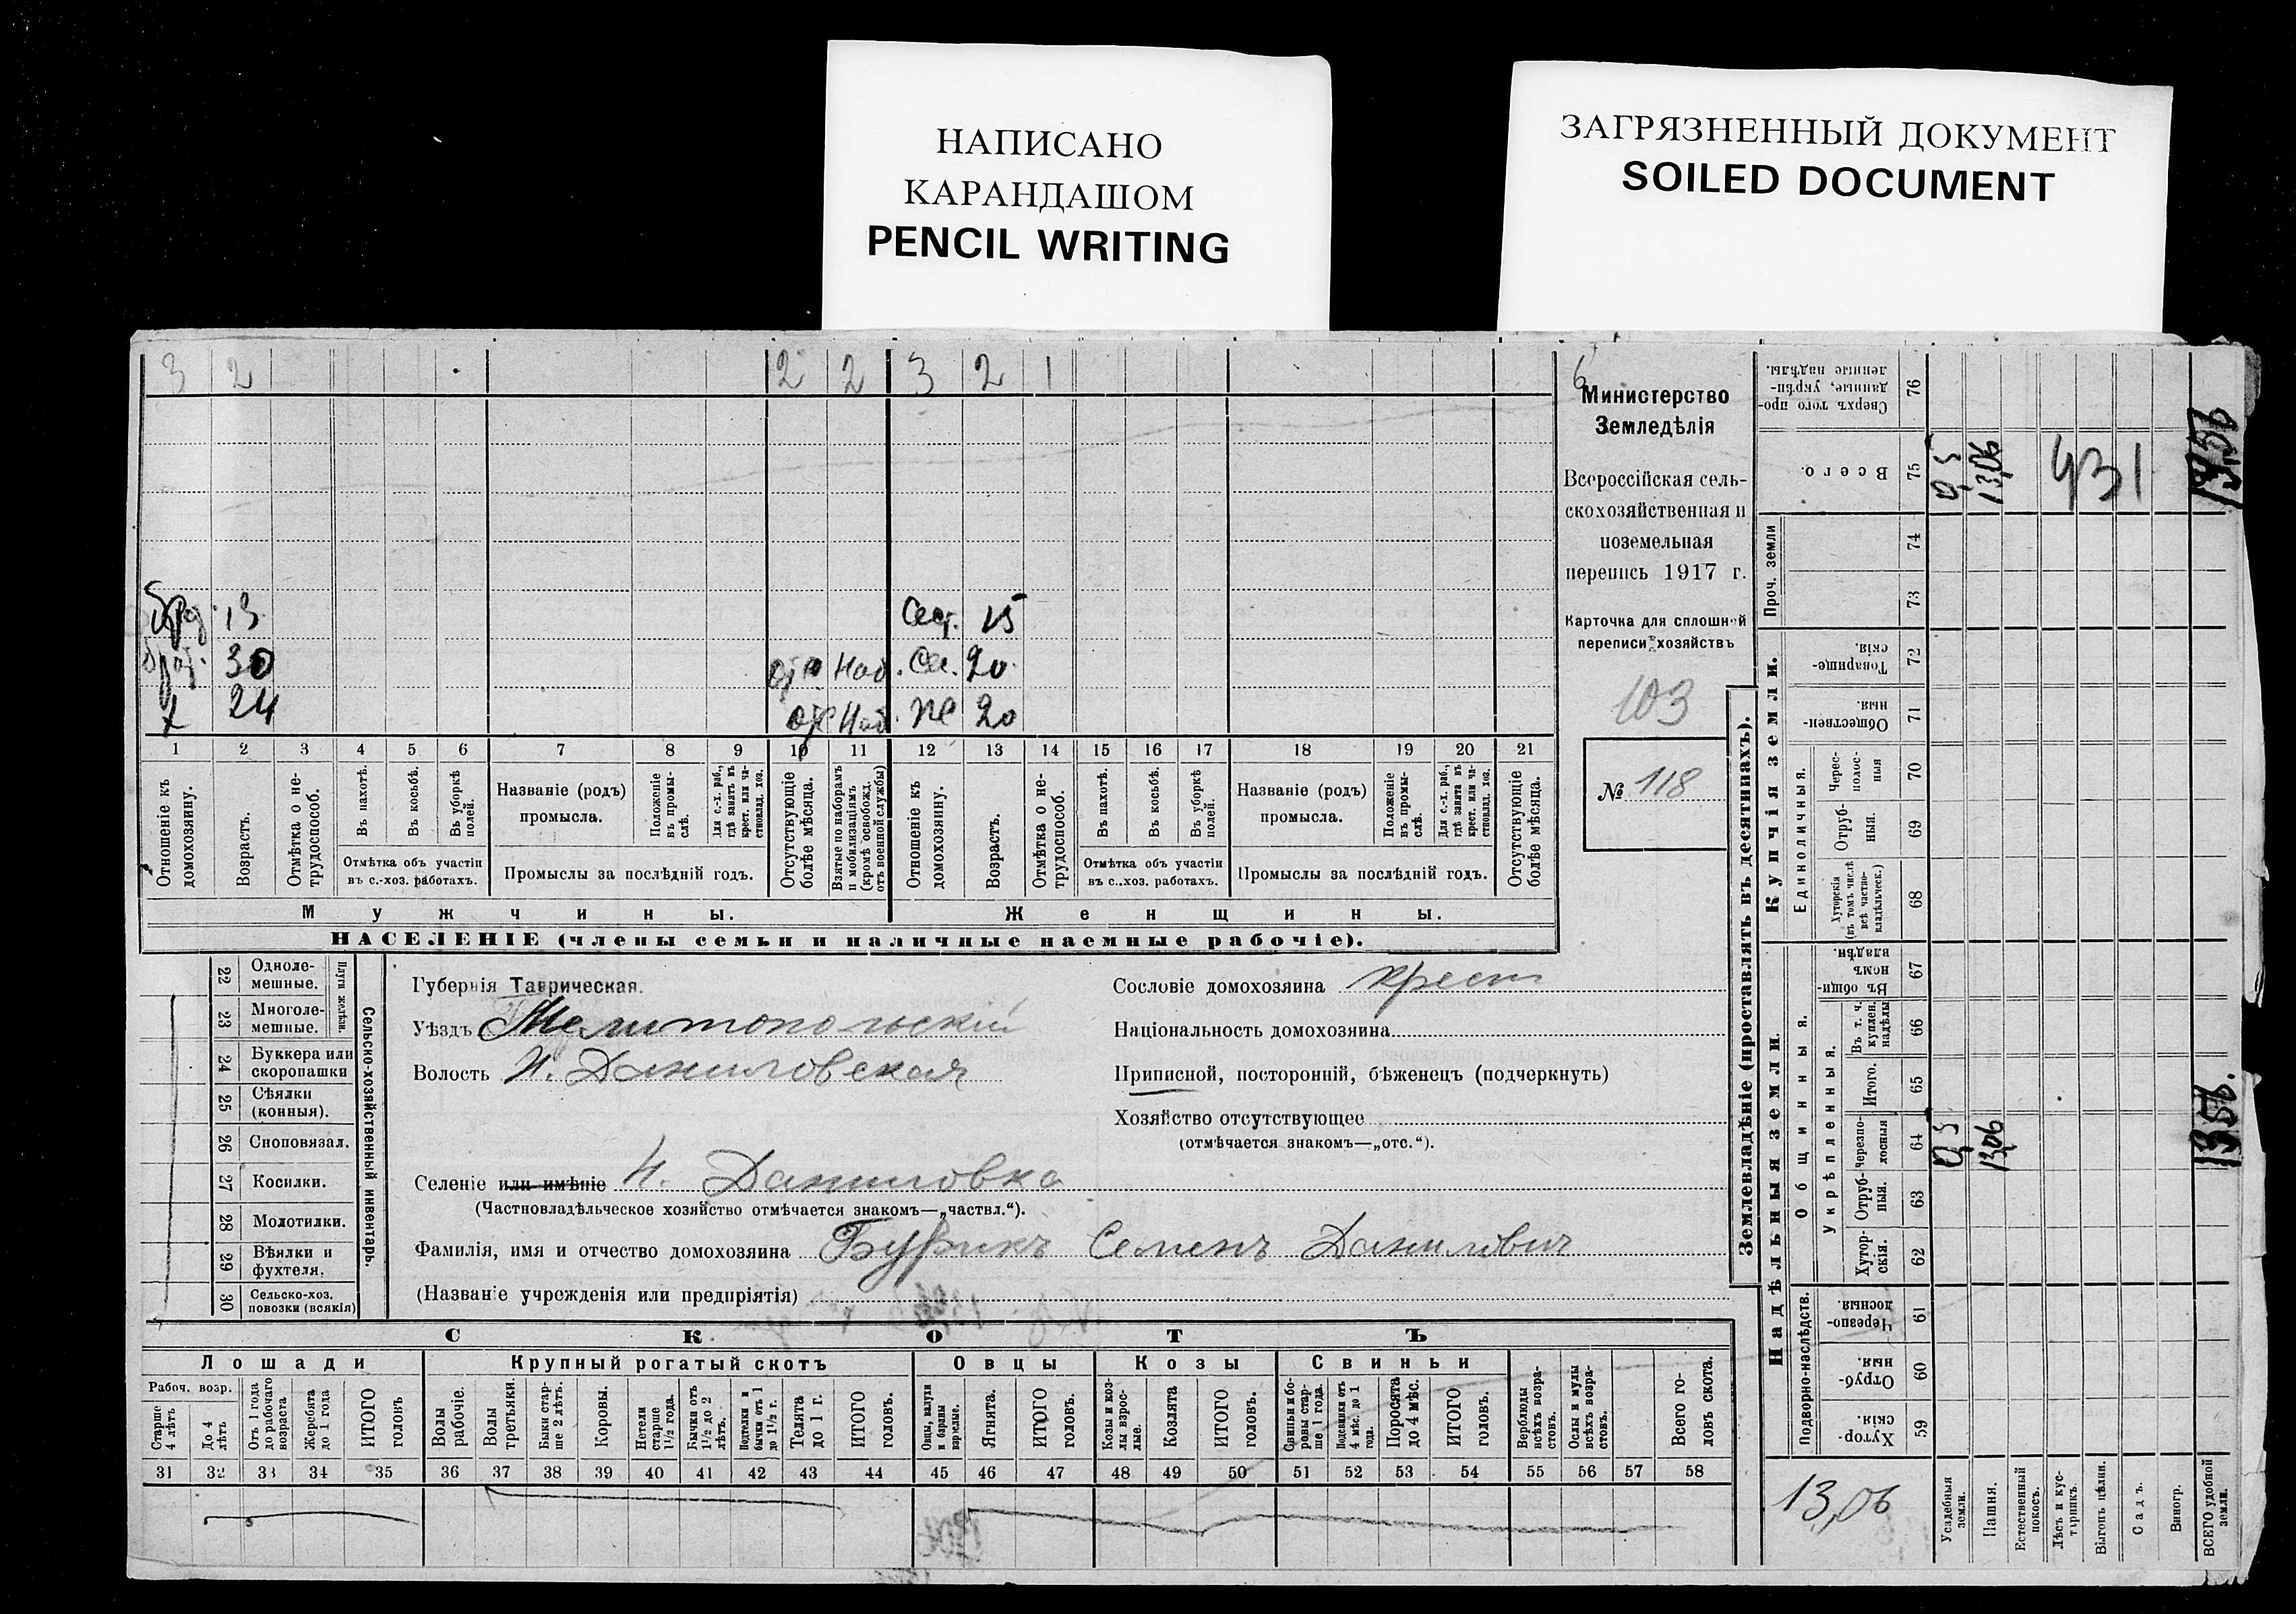 НАПИСАНО
КАРАНДАШОМ
PENCIL WRITING
ЗАГРЯЗНЕННЫЙ ДОКУМЕНТ
SOILED DOCUMENT
3 2 2 2 3 2 1
13 Сест. 15
30 Сес. 20
24 20
1 2 3 4 5 6 7 8 9 10 11 12 13 14 15 16 17 18 19 20 21
Отношеніе къ домохозяину.
Возрастъ.
Отмѣтка о не-трудоспособ.
Въ пахотѣ.
Въ косьбѣ.
Въ уборкѣ полей.
Отмѣтка объ участіи
въ с.-хоз. работахъ.
Названіе (родъ)
промысла.
Положеніе въ промы-слѣ.
Для с.-х. раб., гдѣ занятъ въ крест. или ча-стновлад. хоз.
Промыслы за послѣдній годъ.
Отсутствующіе болѣе мѣсяца.
Взятые по наборамъ и мобилизаціямъ (кромѣ освобожд. отъ военной службы)
Отношеніе къ домохозяину.
Возрастъ.
Отмѣтка о не-трудоспособ.
Въ пахотѣ.
Въ косьбѣ.
Въ уборкѣ полей.
Отмѣтка объ участіи
въ с.-хоз. работахъ.
Названіе (родъ)
промысла.
Положеніе въ промы-слѣ.
Для с.-х. раб., гдѣ занята въ крест. или ча-стновлад. хоз.
Промыслы за послѣдній годъ.
Отсутствующіе болѣе мѣсяца.
Мужчины.
Женщины.
НАСЕЛЕНІЕ (члены семьи и наличные наемные рабочіе).
6
Министерство
Земледѣлія
Всероссійская сель-
скохозяйственная и
поземельная
перепись 1917 г.
Карточка для сплошной
переписи хозяйствъ
103
№ 118
22 Одноле-мешные.
23 Многоле-мешные.
Плуги желѣзн.
24 Буккера или скоропашки
25 Сѣялки (конныя).
26 Сноповязал.
27 Косилки.
28 Молотилки.
29 Вѣялки и фухтеля.
30 Сельско-хоз. повозки (всякія)
Сельско-хозяйственный инвентарь.
Губернія Таврическая.
Уѣздъ Мелитопольскій
Волость Н. Даниловская
Селеніе или имѣніе Н. Даниловка
(Частновладѣльческое хозяйство отмѣчается знакомъ—„частвл.“).
Фамилія, имя и отчество домохозяина Бурикъ Семенъ Данилович
(Названіе учрежденія или предпріятія)
Сословіе домохозяина крест
Національность домохозяина
Приписной, посторонній, бѣженецъ (подчеркнуть)
Хозяйство отсутствующее
(отмѣчается знакомъ—„отс.“).
СКОТЪ
Лошади
Рабоч. возр.
Старше 4 лѣтъ
До 4 лѣтъ
Отъ 1 года до рабочаго возраста
Жеребята до 1 года
ИТОГО головъ
Крупный рогатый скотъ
Волы рабочіе.
Волы третьяки.
Быки стар-ше 2 лѣтъ.
Коровы.
Нетели старше 1½ года.
Бычки отъ 1½ до 2 лѣтъ.
Подтелки и бычки отъ 1 до 1½ г.
Телята до 1 г.
ИТОГО головъ.
Овцы
Овцы, валухи и бараны взрослые.
Ягнята.
ИТОГО головъ.
Козы
Козы и коз-лы взрос-лые.
Козлята
ИТОГО головъ.
Свиньи
Свиньи и бо-ровы стар-ше 1 года.
Подсвинки отъ 4 мѣс. до 1 года.
Поросята до 4 мѣс.
ИТОГО головъ.
Верблюды всѣхъ возра-стовъ.
Ослы и мулы всѣхъ возра-стовъ.
Всего го-ловъ скота.
31 32 33 34 35 36 37 38 39 40 41 42 43 44 45 46 47 48 49 50 51 52 53 54 55 56 57 58
Землевладѣніе (проставлять въ десятинахъ).
Купчія земли.
Надѣльныя земли.
Сверхъ того про-данные, укрѣп-ленные надѣлы. 76
Всего. 75
Проч. земли 74 73
Товарище-скія. 72
Обществен-ныя. 71
Единоличныя.
Черес-полос-ныя 70
Отруб-ныя. 69
Хуторскія (въ томъ числѣ всѣ частно-владѣльческ.) 68
Общинныя.
Въ общи-номъ владѣн. 67
Укрѣпленныя.
Въ т. ч. куплен. надѣлы 66
Итого. 65
черезпо-лосныя 64
Отруб-ныя. 63
Хутор-скія. 62
Подворно-наслѣдств.
Черезпо-лосныя 61
Отруб-ныя. 60
Хутор-скія. 59
0,5 13,06 431 13,56
0,5 13,06 13,56.
13,06
Усадебныя земли.
Пашня.
Естественный покосъ.
Лѣсъ и кус-тарникъ.
Выгонъ цѣлин.
Садъ.
Виногр.
ВСЕГО удобной земли.